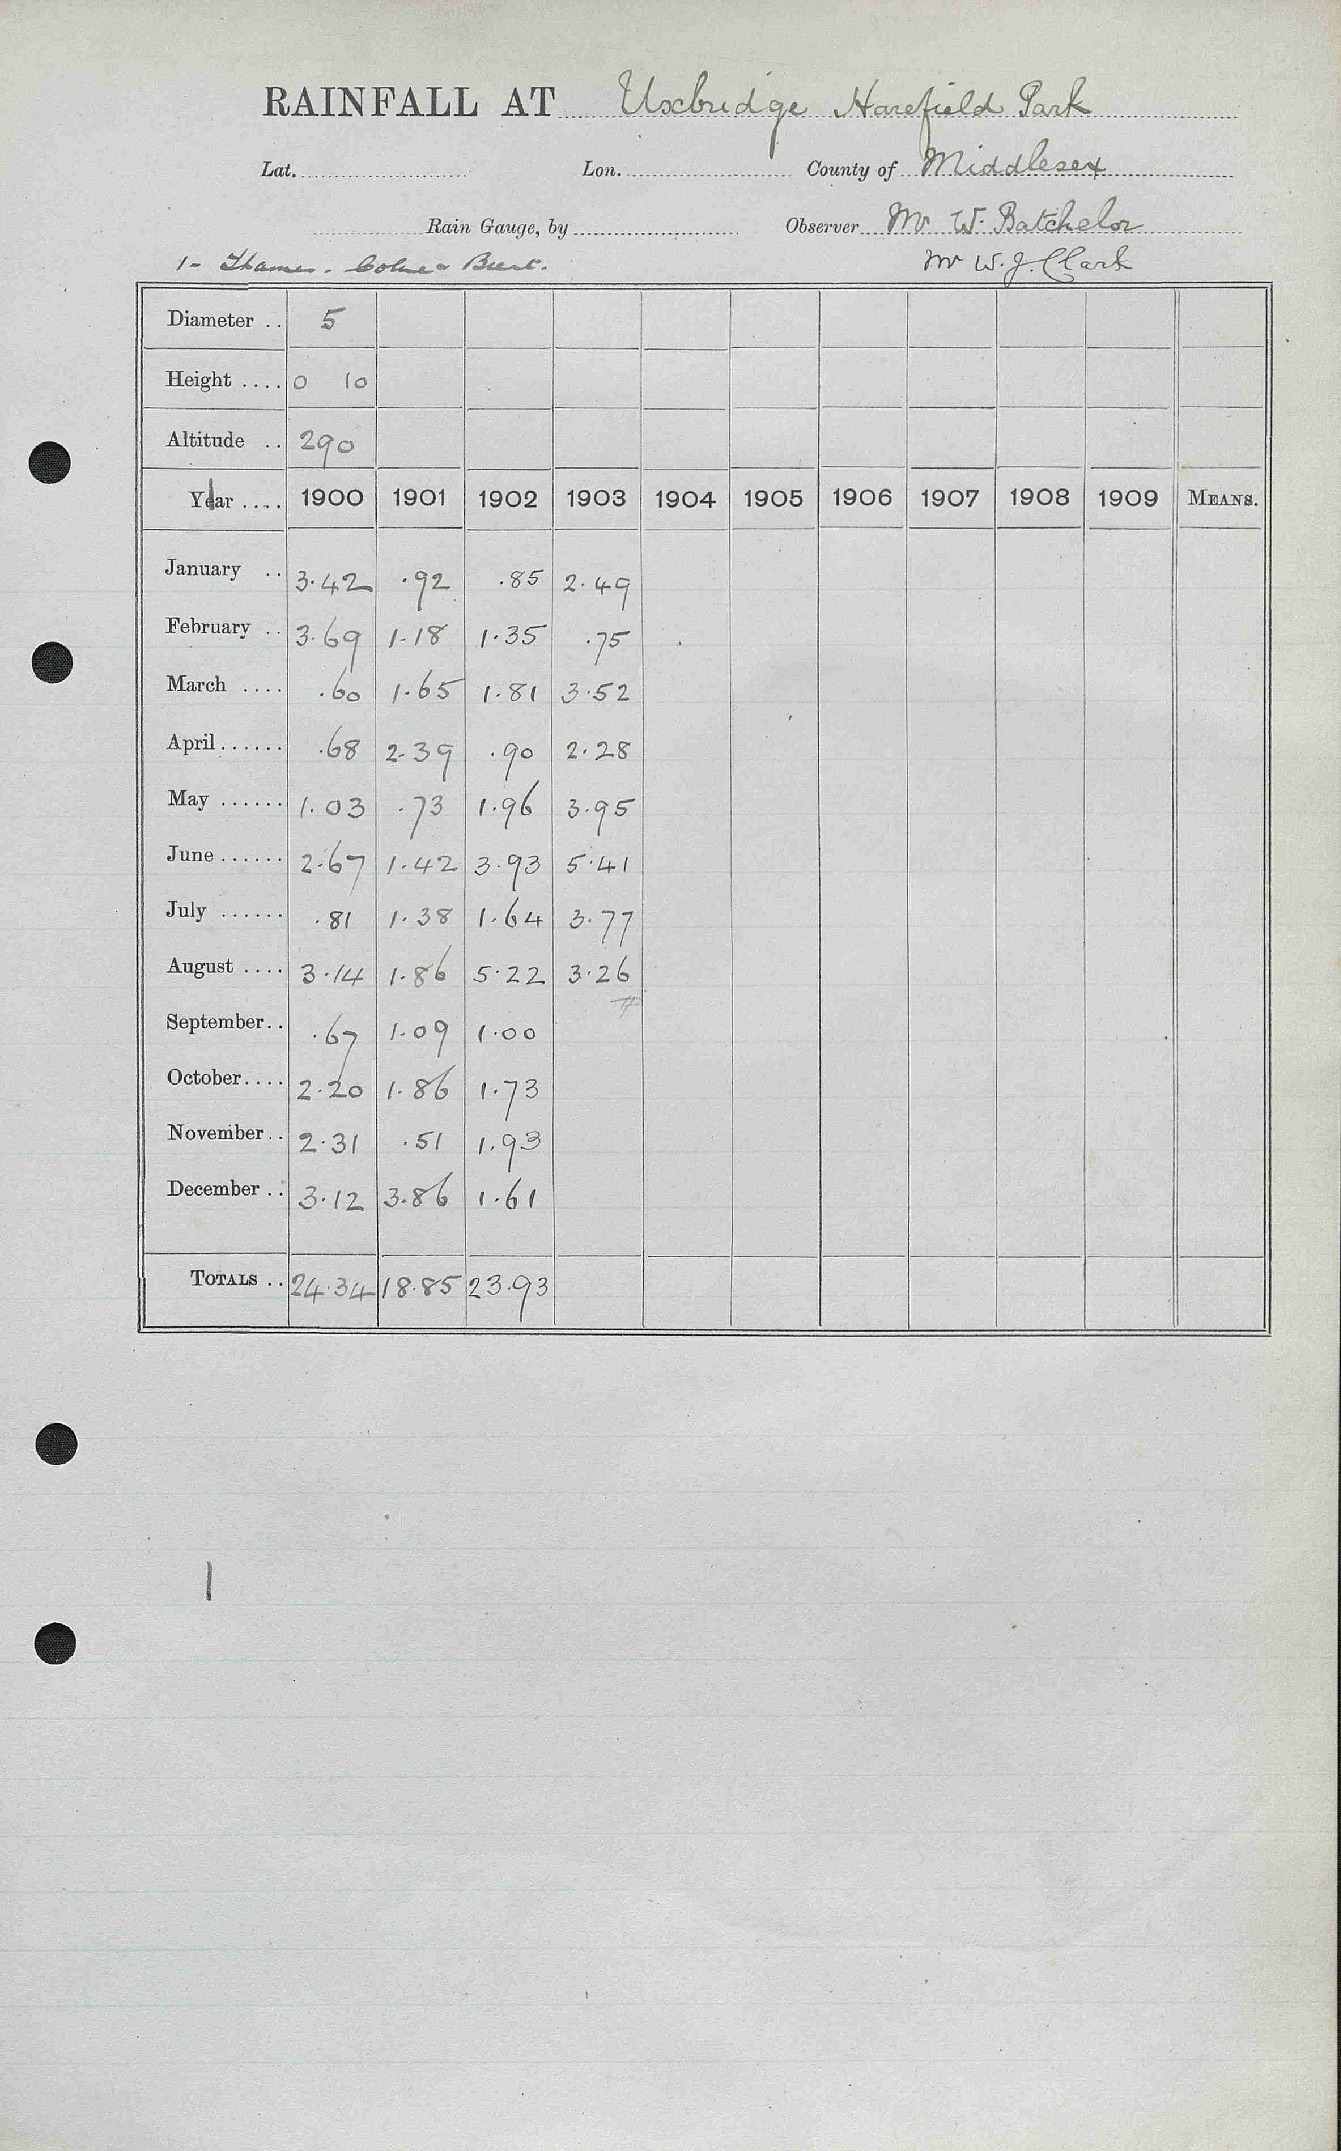 RAINFALL AT Uxbridge Harefield Park
Lat. Lon. County of Middlesex
Rain Gauge, by Observer Mr W. Batchelor
1- Thames. Colne Mr W. J. Clark
Diameter .. 5
Height .... 0 10
Altitude .. 290
Year .... 1900 1901 1902 1903 1904 1905 1906 1907 1908 1909 MEANS.
January .. 3.42 .92 .85 2.49
February .. 3.69 1.18 1.35 .75
March .... .60 1.65 1.81 3.52
April ...... .68 2.39 .90 2.28
May ...... 1.03 .73 1.96 3.95
June ...... 2.67 1.42 3.93 5.41
July ...... .81 1.38 1.64 3.77
August .... 3.14 1.86 5.22 3.26
September .. .67 1.09 1.00
October .... 2.20 1.86 1.73
November .. 2.31 .51 1.93
December .. 3.12 3.86 1.61
TOTALS .. 24.34 18.85 23.93